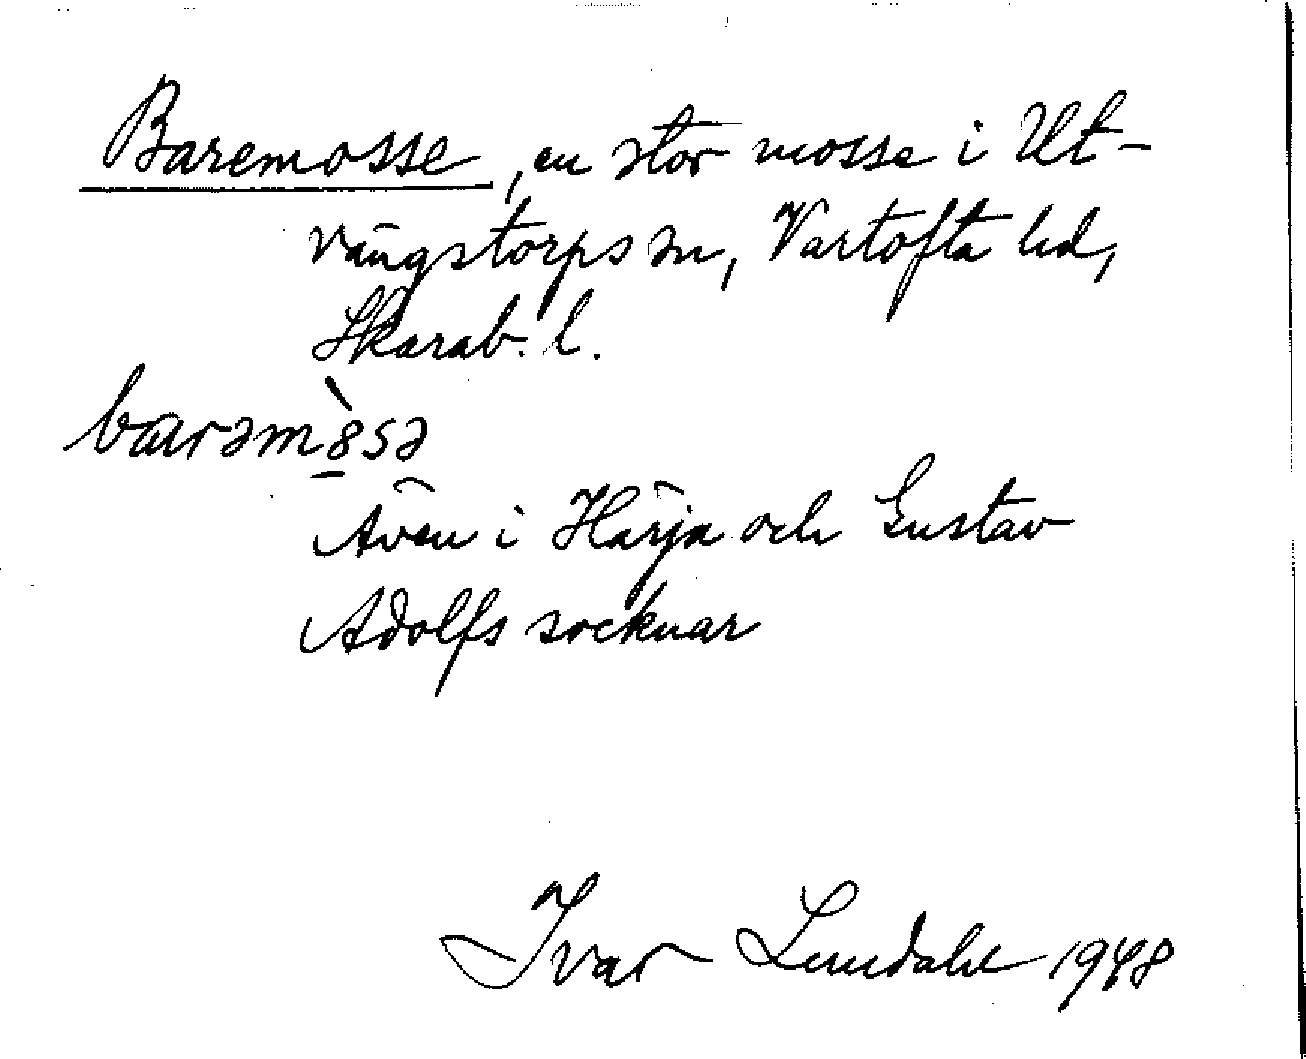 Baremosse, en stor mosse i Ut-
vängstorps sn, Vartofta hd,
Skarab. l.
barəm8̀sə
Även i Härja och Gustav
Adolfs socknar
Ivar Lundahl 1948